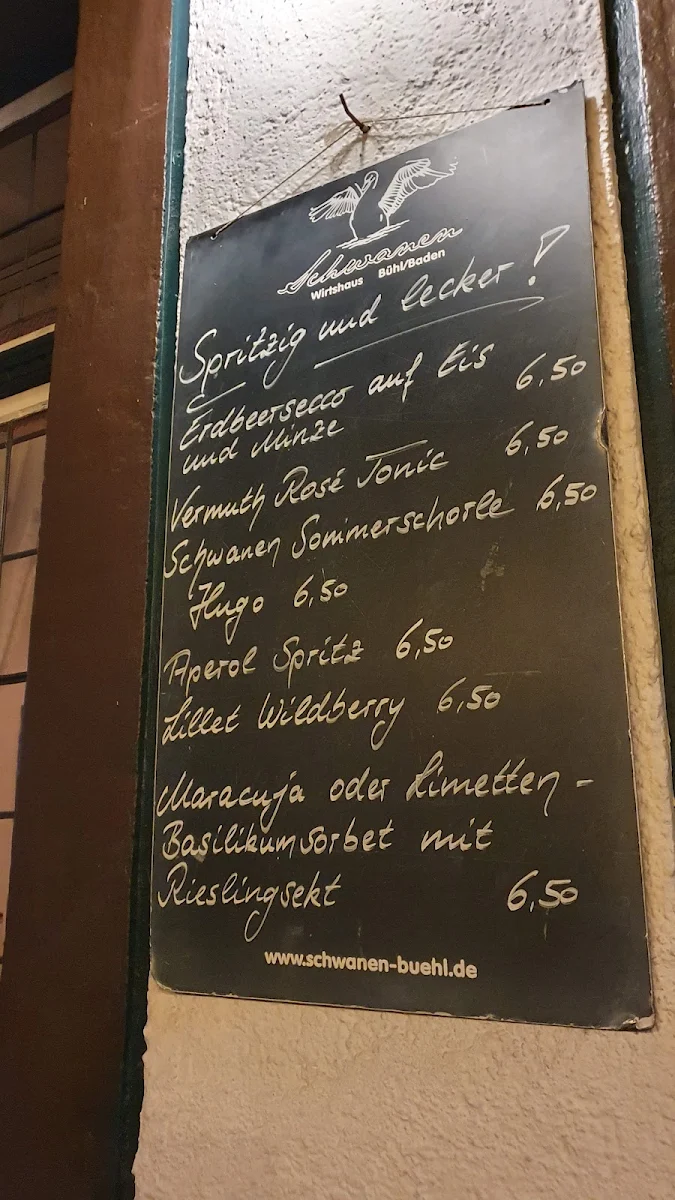 Schwanen
Wirtshaus Bühl/Baden
Spritzig und lecker!
Erdbeersecco auf Eis
und Minze 6,50
Vermuth Rosé Tonic 6,50
Schwanen Sommerschorle 6,50
Hugo 6,50
Aperol Spritz 6,50
Lillet Wildberry 6,50
Maracuja oder Limetten-
Basilikumsorbet mit
Rieslingsekt 6,50
www.schwanen-buehl.de